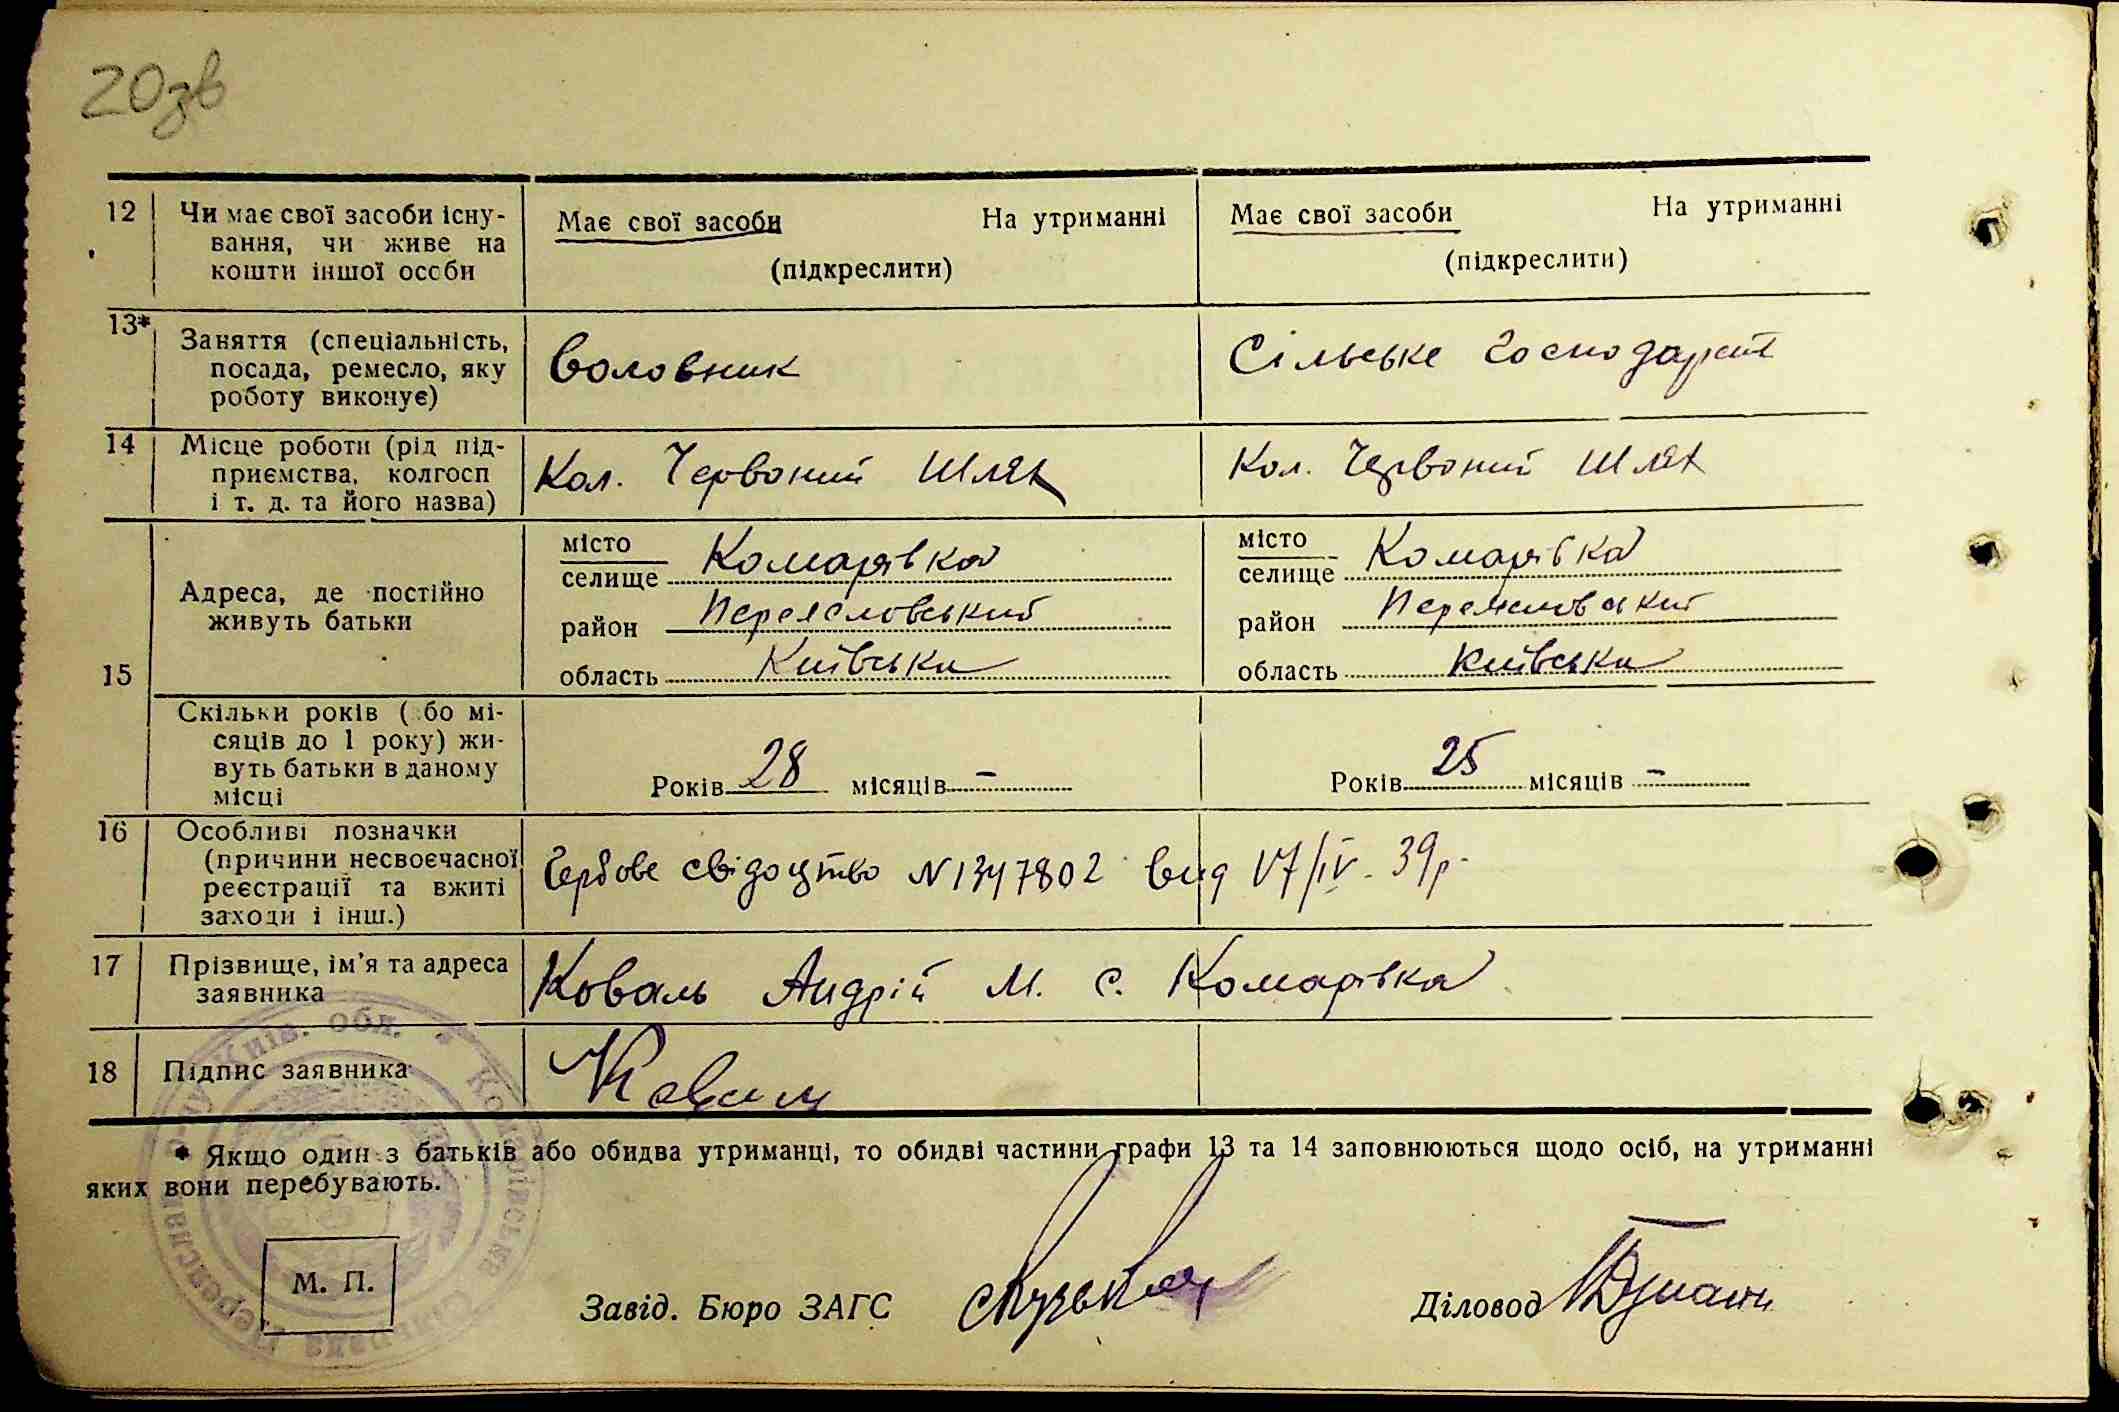 20зв
12 Чи має свої засоби існу- Має свої засоби На утриманні Має свої засоби На утриманні
вання, чи живе на
кошти іншої особи (підкреслити) (підкреслити)
13* Заняття (спеціальність,
посада, ремесло, яку Воловник Сільське Господарст
роботу виконує)
14 Місце роботи (рід під-
приємства, колгосп Кол. Червоний Шлях Кол. Червоний Шлях
і т. д. та його назва)
15 Адреса, де постійно
живуть батьки
місто Комарівка місто Комарівка
селище селище
район Переясловський район Переясловський
область Київська область Київська
Скільки років (бо мі-
сяців до 1 року) жи-
вуть батьки в даному Років 28 місяців – Років 25 місяців –
місці
16 Особливі позначки
(причини несвоєчасної Гербове свідоцтво N 1347802 вид 17/IV. 39р.
реєстрації та вжиті
заходи і інш.)
17 Прізвище, ім'я та адреса Коваль Андрій М. с. Комарівка
заявника
18 Підпис заявника Коваль
* Якщо один з батьків або обидва утриманці, то обидві частини графи 13 та 14 заповнюються щодо осіб, на утриманні
яких вони перебувають.
М. П. Завід. Бюро ЗАГС Діловод
Київ. обл.